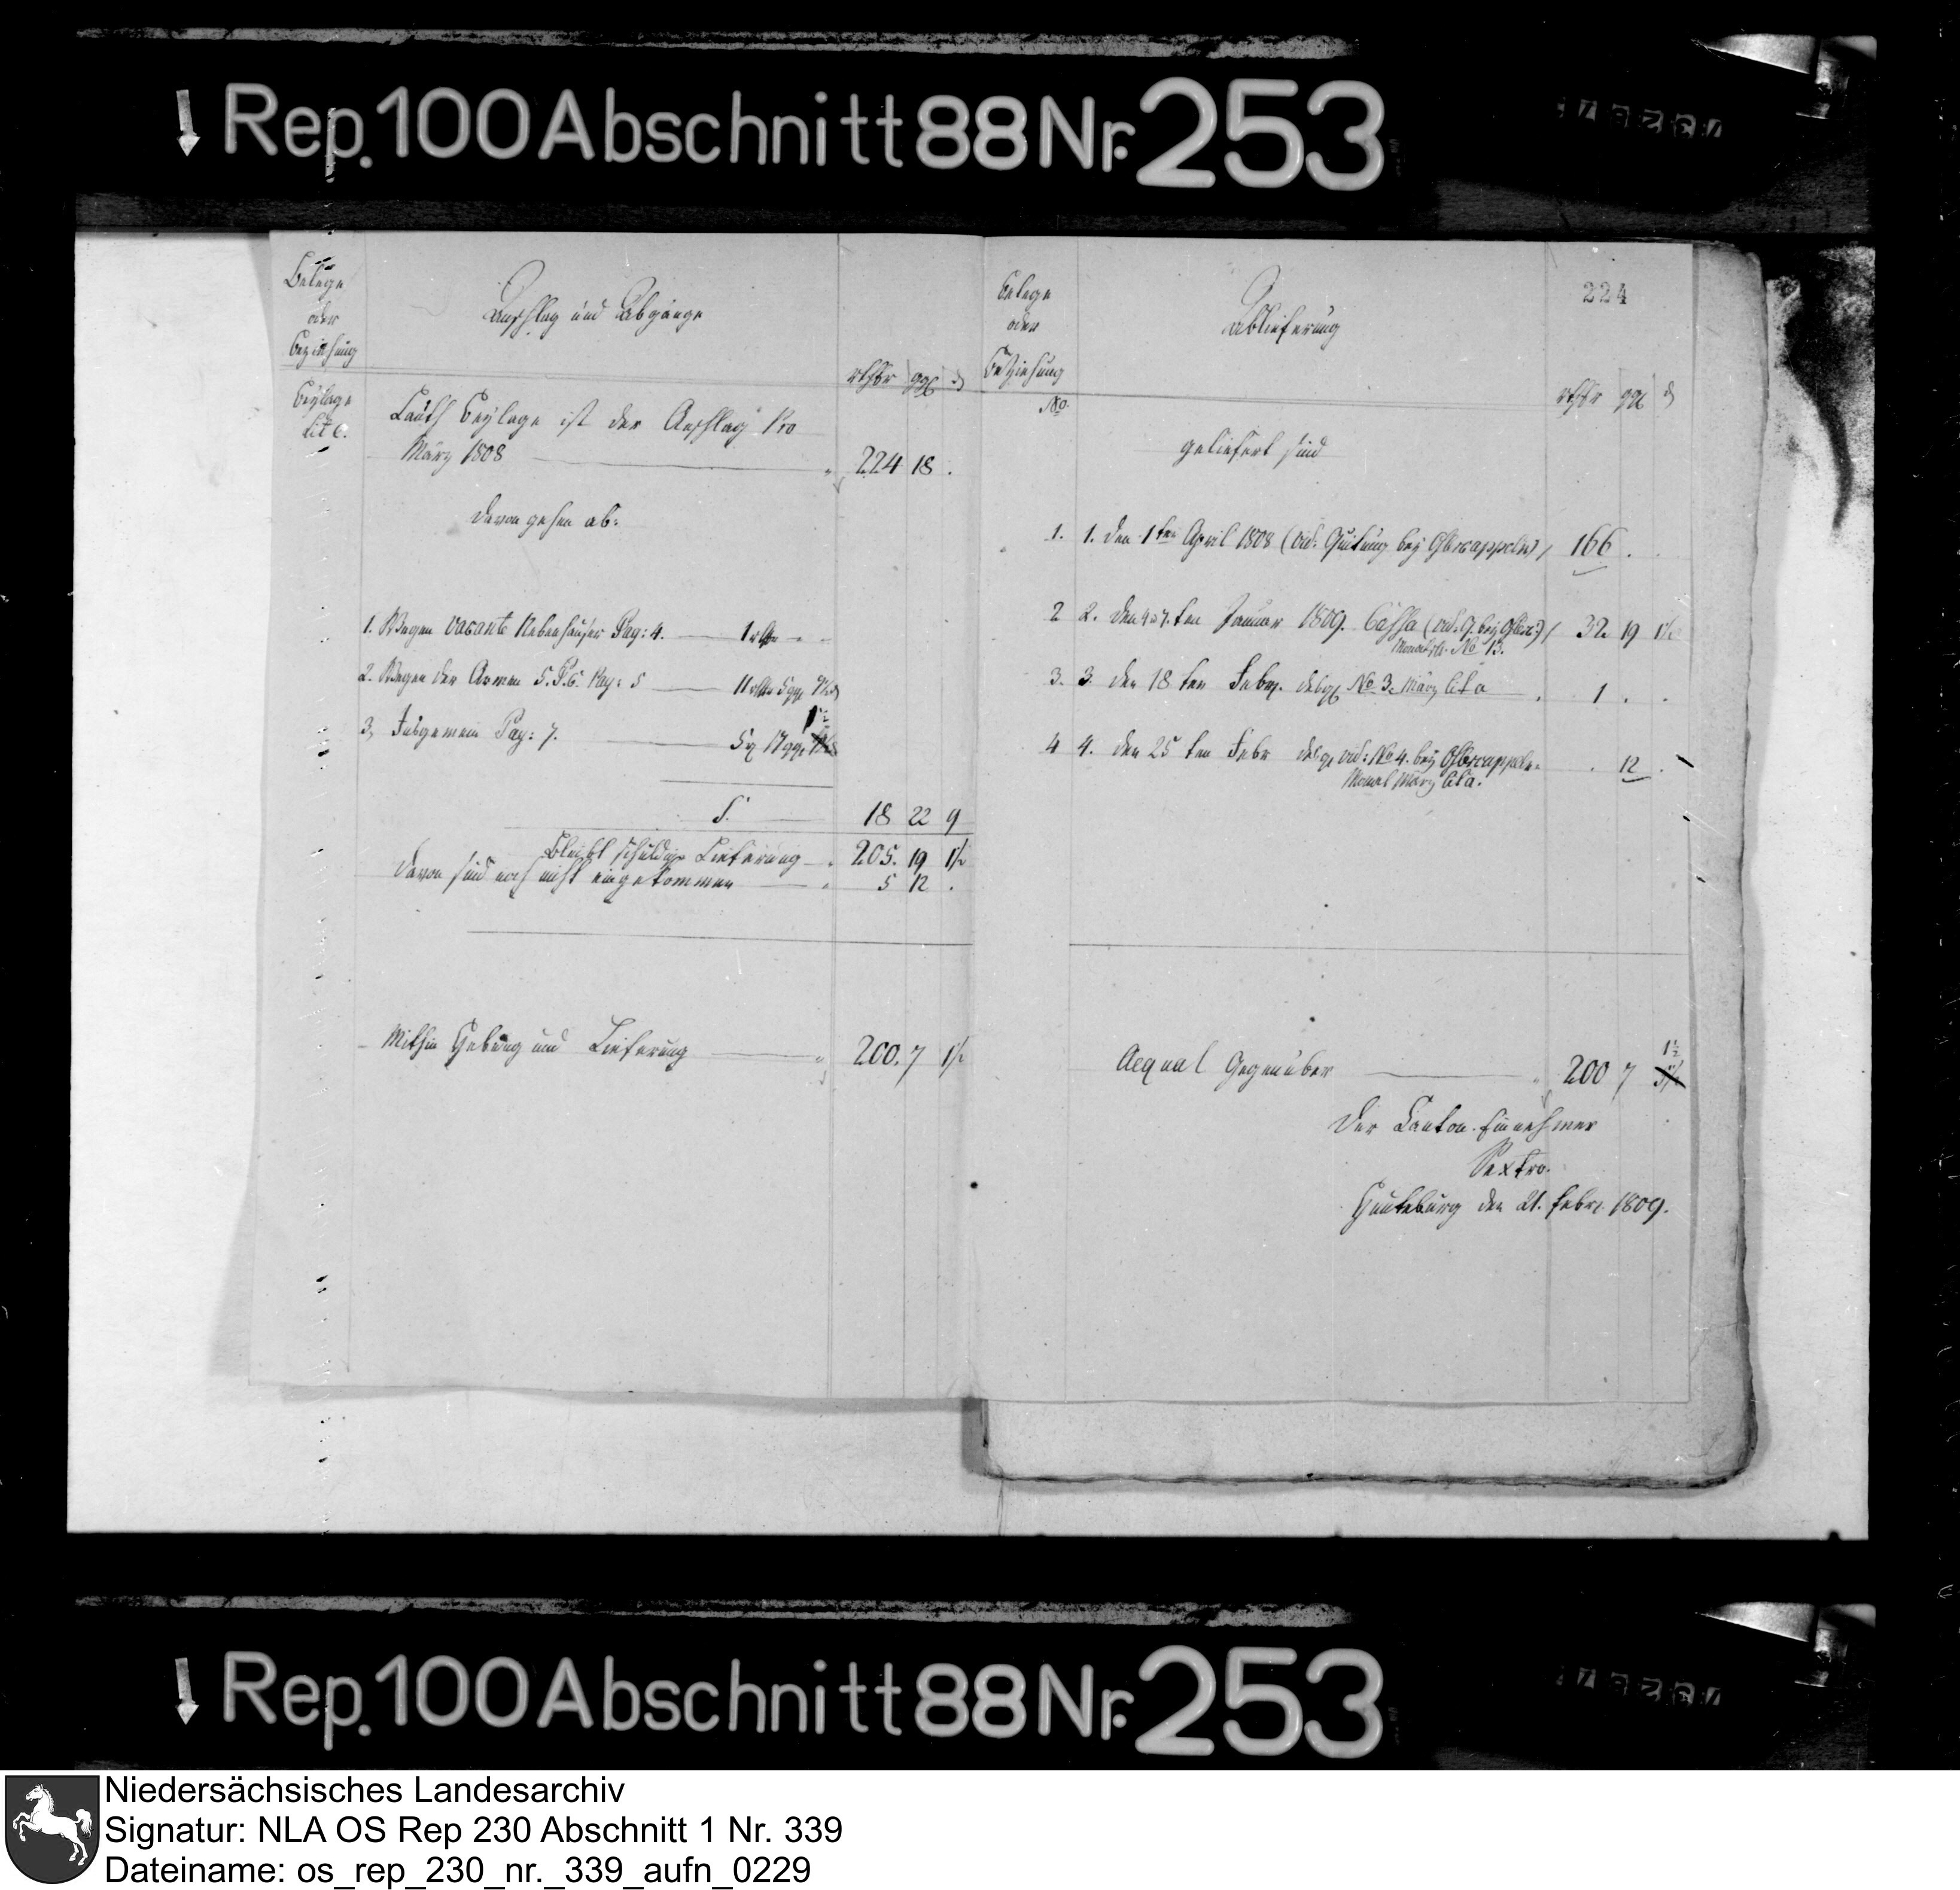 Rep. 100 Abschnitt 88 Nr. 253
Belege
oder
Beziehung
Anschlag und Abgänge
rthlr ggl d
Beylage
lit C.
Lauth Beylage ist der Anschlag Pro
März 1808 224 18 .
davon gehen ab:
1. Wegen vacante Nebenhäuser Pag: 4. 1 rthlr - -
2. Wegen der Armen S. Pag: 5 11 rthlr 5 ggl
3, Insgemein Pag: 7. 17 ggl
S. 18 22 9
Bleibt schuldige Lieferung 205. 19 1½
davon sind noch nicht eingekommen 5 12 .
Mithin Hebung und Lieferung 200. 7 1½
224
Belege
oder
Beziehung
No.
Ablieferung
rthlr ggl d
geliefert sind
1. 1. den 1ten April 1808 (vid: Quitung bey Ostercappeln) 166 .
2 2. den ten Januar 1809. Cassa 32 19 1½
No 13.
3. 3. den 18 ten Febr. No 3. März lit a 1 . .
4 4. den 25 ten Febr vid: No 4. bey Ostercappeln . 12 .
Monat März lit a.
Aequal Gegenüber 200 7 1½
Der Canton. Einnehmer
Sextro.
Hunteburg den 21. Febr. 1809.
Rep. 100 Abschnitt 88 Nr. 253
Niedersächsisches Landesarchiv
Signatur: NLA OS Rep 230 Abschnitt 1 Nr. 339
Dateiname: os_rep_230_nr._339_aufn_0229